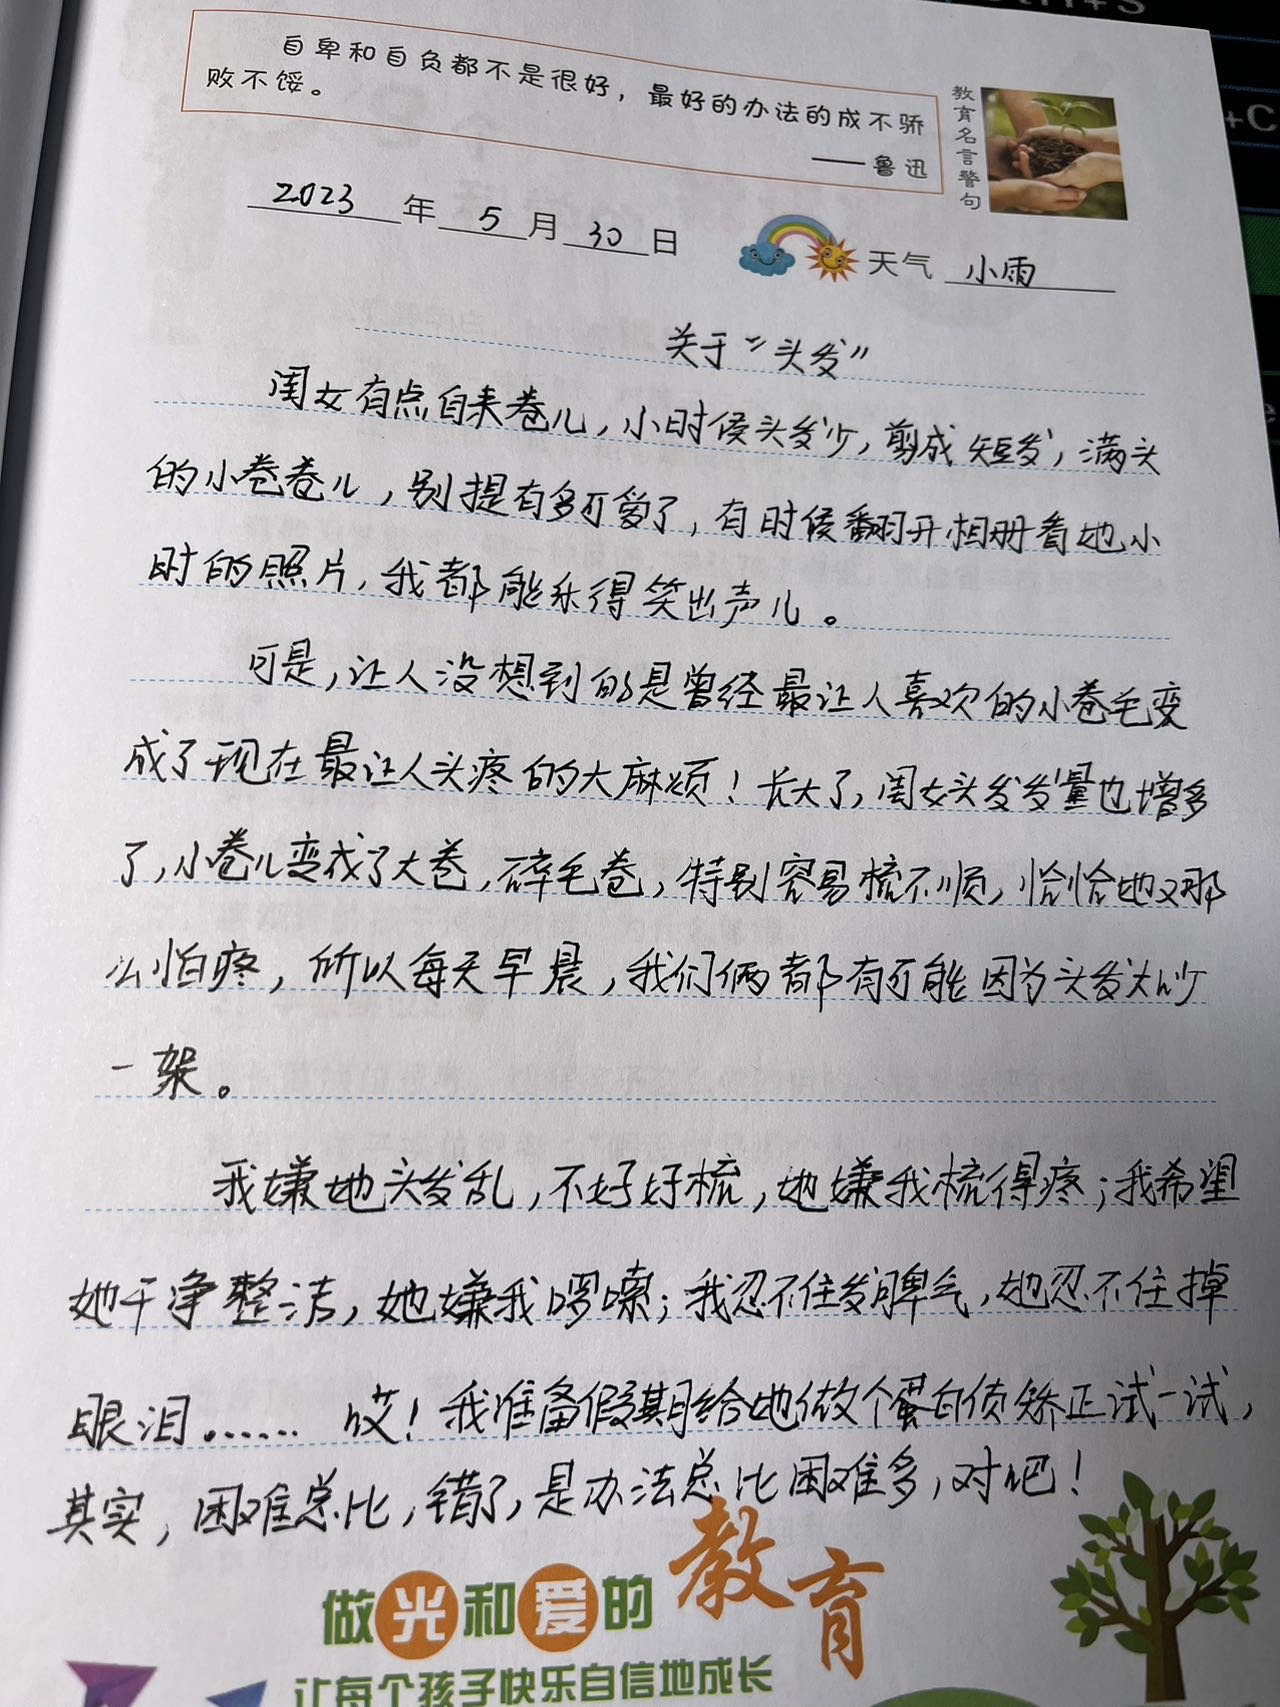 自卑和自负都不是很好，最好的办法的成不骄
败不馁。
——鲁迅
教育名言警句
2023年5月30日
天气 小雨
关于“头发”
闺女有点自来卷儿，小时候头发少，剪成短发，满头
的小卷卷儿，别提有多可爱了，有时候翻开相册看她小
时的照片，我都能乐得笑出声儿。
可是，让人没想到的是曾经最让人喜欢的小卷毛变
成了现在最让人头疼的大麻烦！长大了，闺女头发发量也增多
了，小卷儿变成了大卷，碎毛卷，特别容易梳不顺，恰恰她又那
么怕疼，所以每天早晨，我们俩都有可能因为头发大吵
一架。
我嫌她头发乱，不好好梳，她嫌我梳得疼；我希望
她干净整洁，她嫌我啰嗦；我忍不住发脾气，她忍不住掉
眼泪。…… 哎！我准备假期给她做个蛋白侦矫正试一试，
其实，困难总比，错了，是办法总比困难多，对吧！
做光和爱的教育
让每个孩子快乐自信地成长